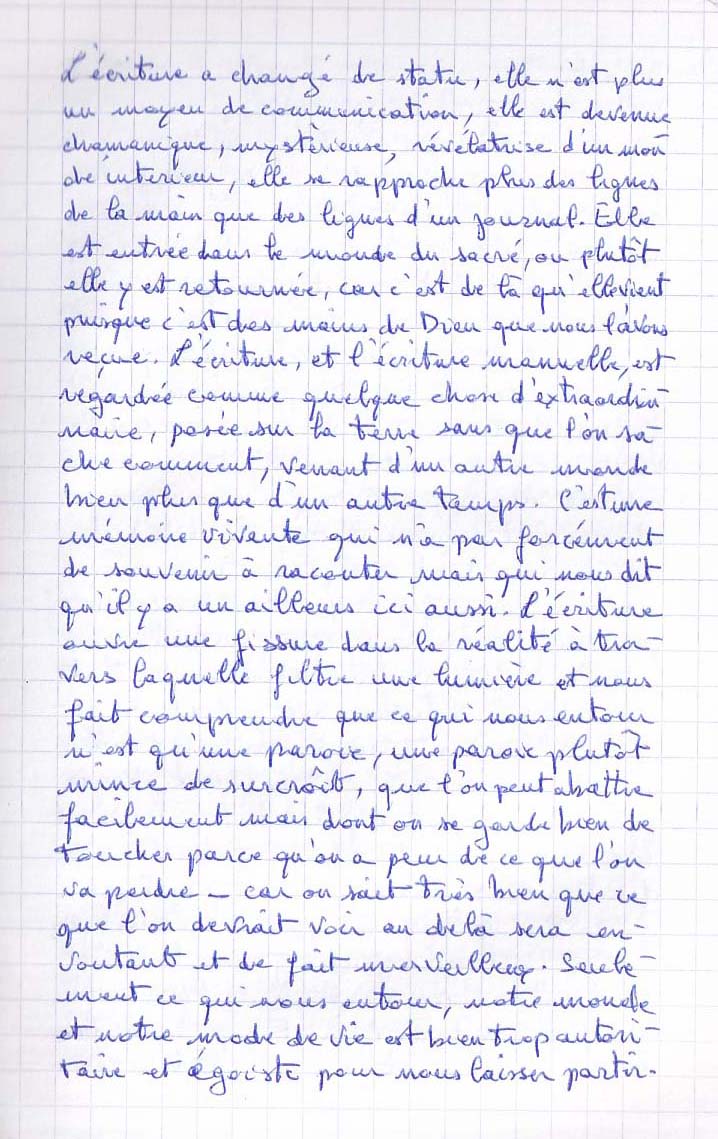 L'écriture a changé de statu, elle n'est plus
un moyen de communication, elle est devenue
chamanique, mystérieuse, révélatrise d'un mon
de intérieur, elle se rapproche plus des lignes
de la main que des lignes d'un journal. Elle
est entrée dans le monde du sacré, ou plutôt
elle y est retournée, car c'est de là qu'elle vient
puisque c'est des mains de Dieu que nous l'avons
reçue. L'écriture, et l'écriture manuelle, est
regardée comme quelque chose d'extraordi-
naire, posée sur la terre sans que l'on sa-
che comment, venant d'un autre monde
bien plus que d'un autre temps. C'est une
mémoire vivante qui n'a pas forcément
de souvenir à raconter mais qui nous dit
qu'il y a un ailleurs ici aussi. L'écriture
ouvre une fissure dans la réalité à tra-
vers laquelle filtre une lumière et nous
fait comprendre que ce qui nous entoure
n'est qu'une paroie, une paroie plutôt
mince de surcroît, que l'on peut abattre
facilement mais dont on se garde bien de
toucher parce qu'on a peur de ce que l'on
va perdre - car on sait très bien que ce
que l'on devrait voir au delà sera en-
voutant et de fait merveilleux. Seule-
ment ce qui nous entoure, notre monde
et notre mode de vie est bien trop autori-
taire et égoiste pour nous laisser partir.